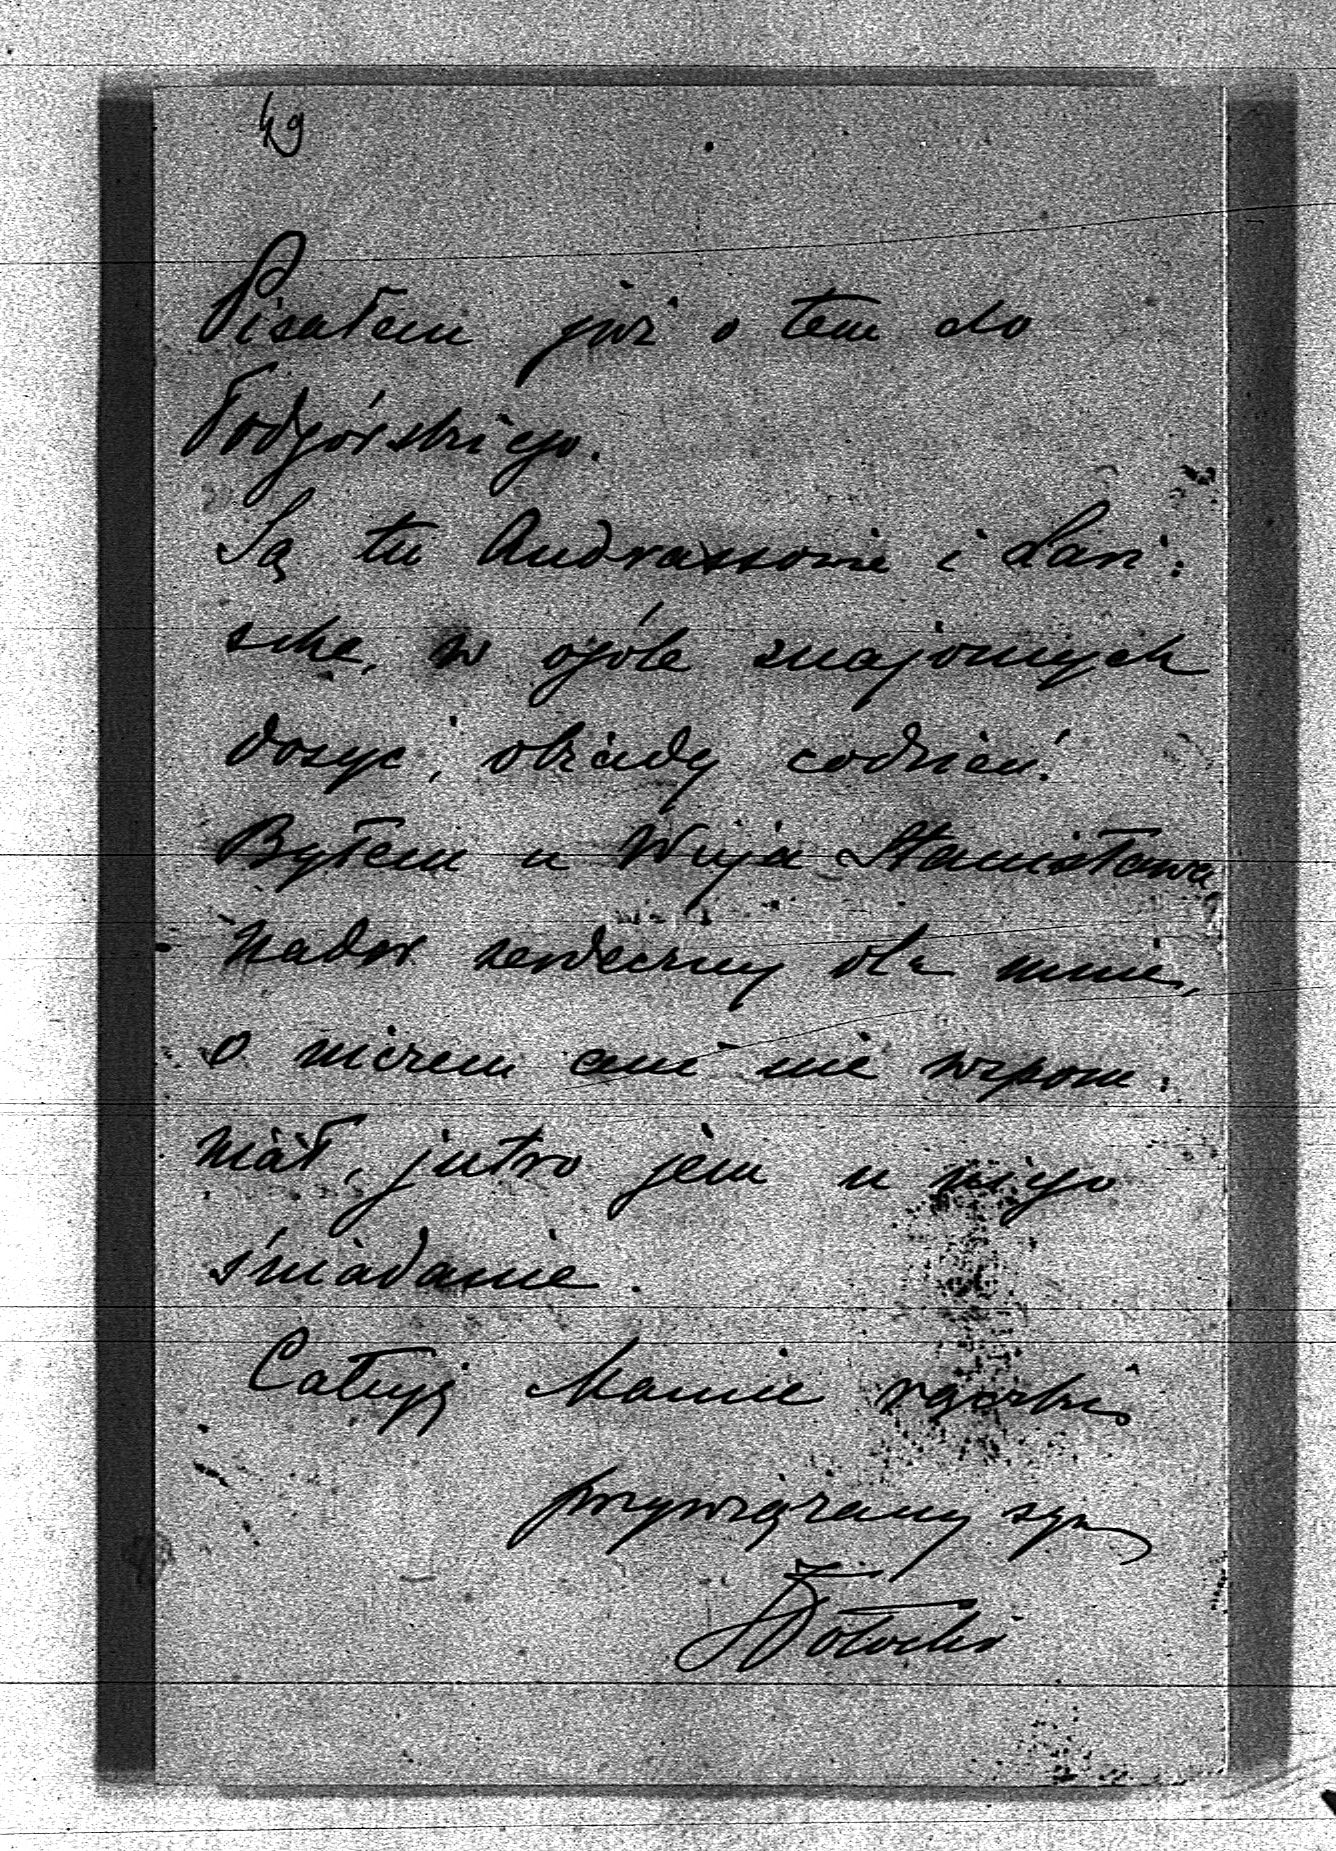 49
Pisałem już o tem do
Podgórskiego.
Są tu Andrassowie i Lari:
sche, w ogóle znajomych
dosyć, obiady codzień.
Byłem u Wuja Stanisława,
nader serdeczny dla mnie,
o niczem ani nie wspom:
niał, jutro jem u niego
śniadanie.
Całuję Mamie rączki,
przywiązany syn
Potocki